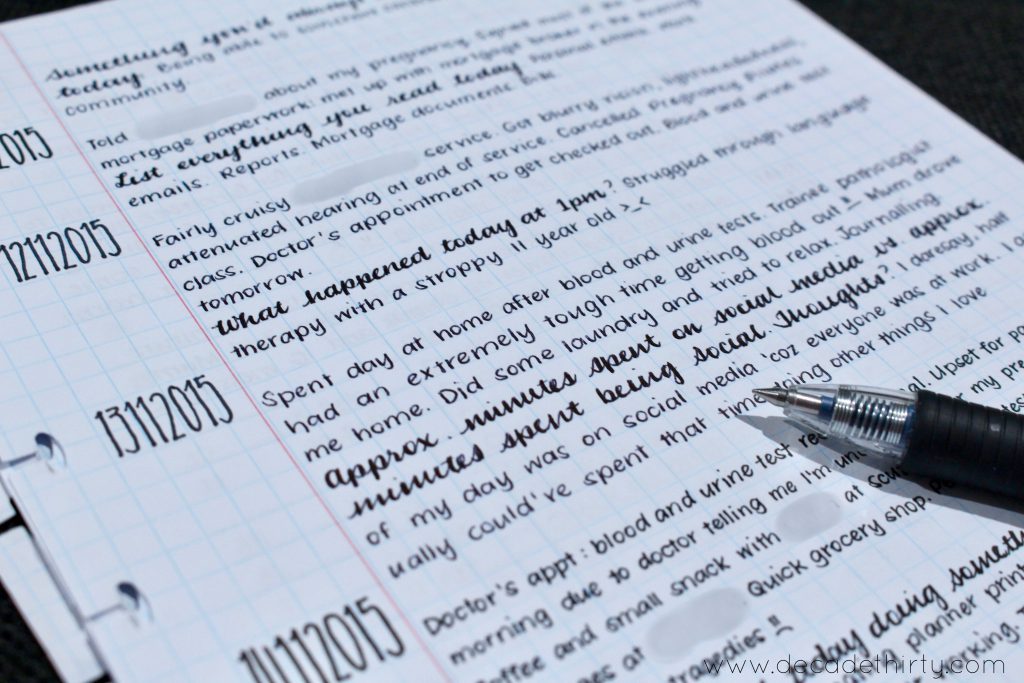 something you'd always
today. Being able to
community
2015
Told about my pregnancy. Signed most of the
mortgage paperwork; met up with mortgage broker in the evening.
List everything you read today. Personal emails. Work
emails. Reports. Mortgage documents.
12112015
Fairly cruisy service. Got blurry vision, lightheadedness,
attenuated hearing at end of service. Cancelled Pregnancy Pilates
class. Doctor's appointment to get checked out. Blood and urine test
tomorrow.
What happened today at 1pm? Struggled through language
therapy with a stroppy 11 year old >_<
13112015
Spent day at home after blood and urine tests. Trainee pathologist
had an extremely tough time getting blood out. Mum drove
me home. Did some laundry and tried to relax. Journalling.
approx. minutes spent on social media vs. approx.
minutes spent being social. Thoughts? I daresay, half
of my day was on social media 'coz everyone was at work. I
ually could've spent that time doing other things I love
14112015
Doctor's appt: blood and urine test Upset for
morning due to doctor telling me I'm my
coffee and small snack with at
at Quick grocery shop.
tragedies
today doing something
planner
working.
www.decadethirty.com